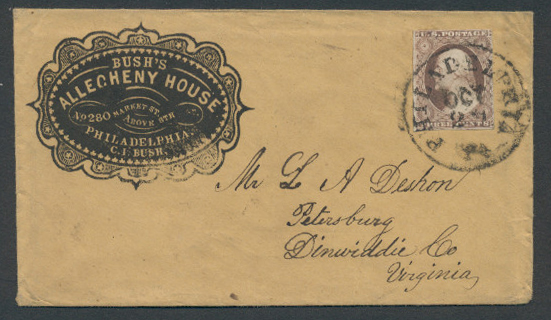 BUSH'S
ALLEGHENY HOUSE
No 280 MARKET ST.
ABOVE 8TH
PHILADELPHIA.
C. J. BUSH.
U.S. POSTAGE
THREE CENTS
PHILADELPHIA Pa.
OCT
Mr L A Deshon
Petersburg
Dinwiddie Co
Virginia